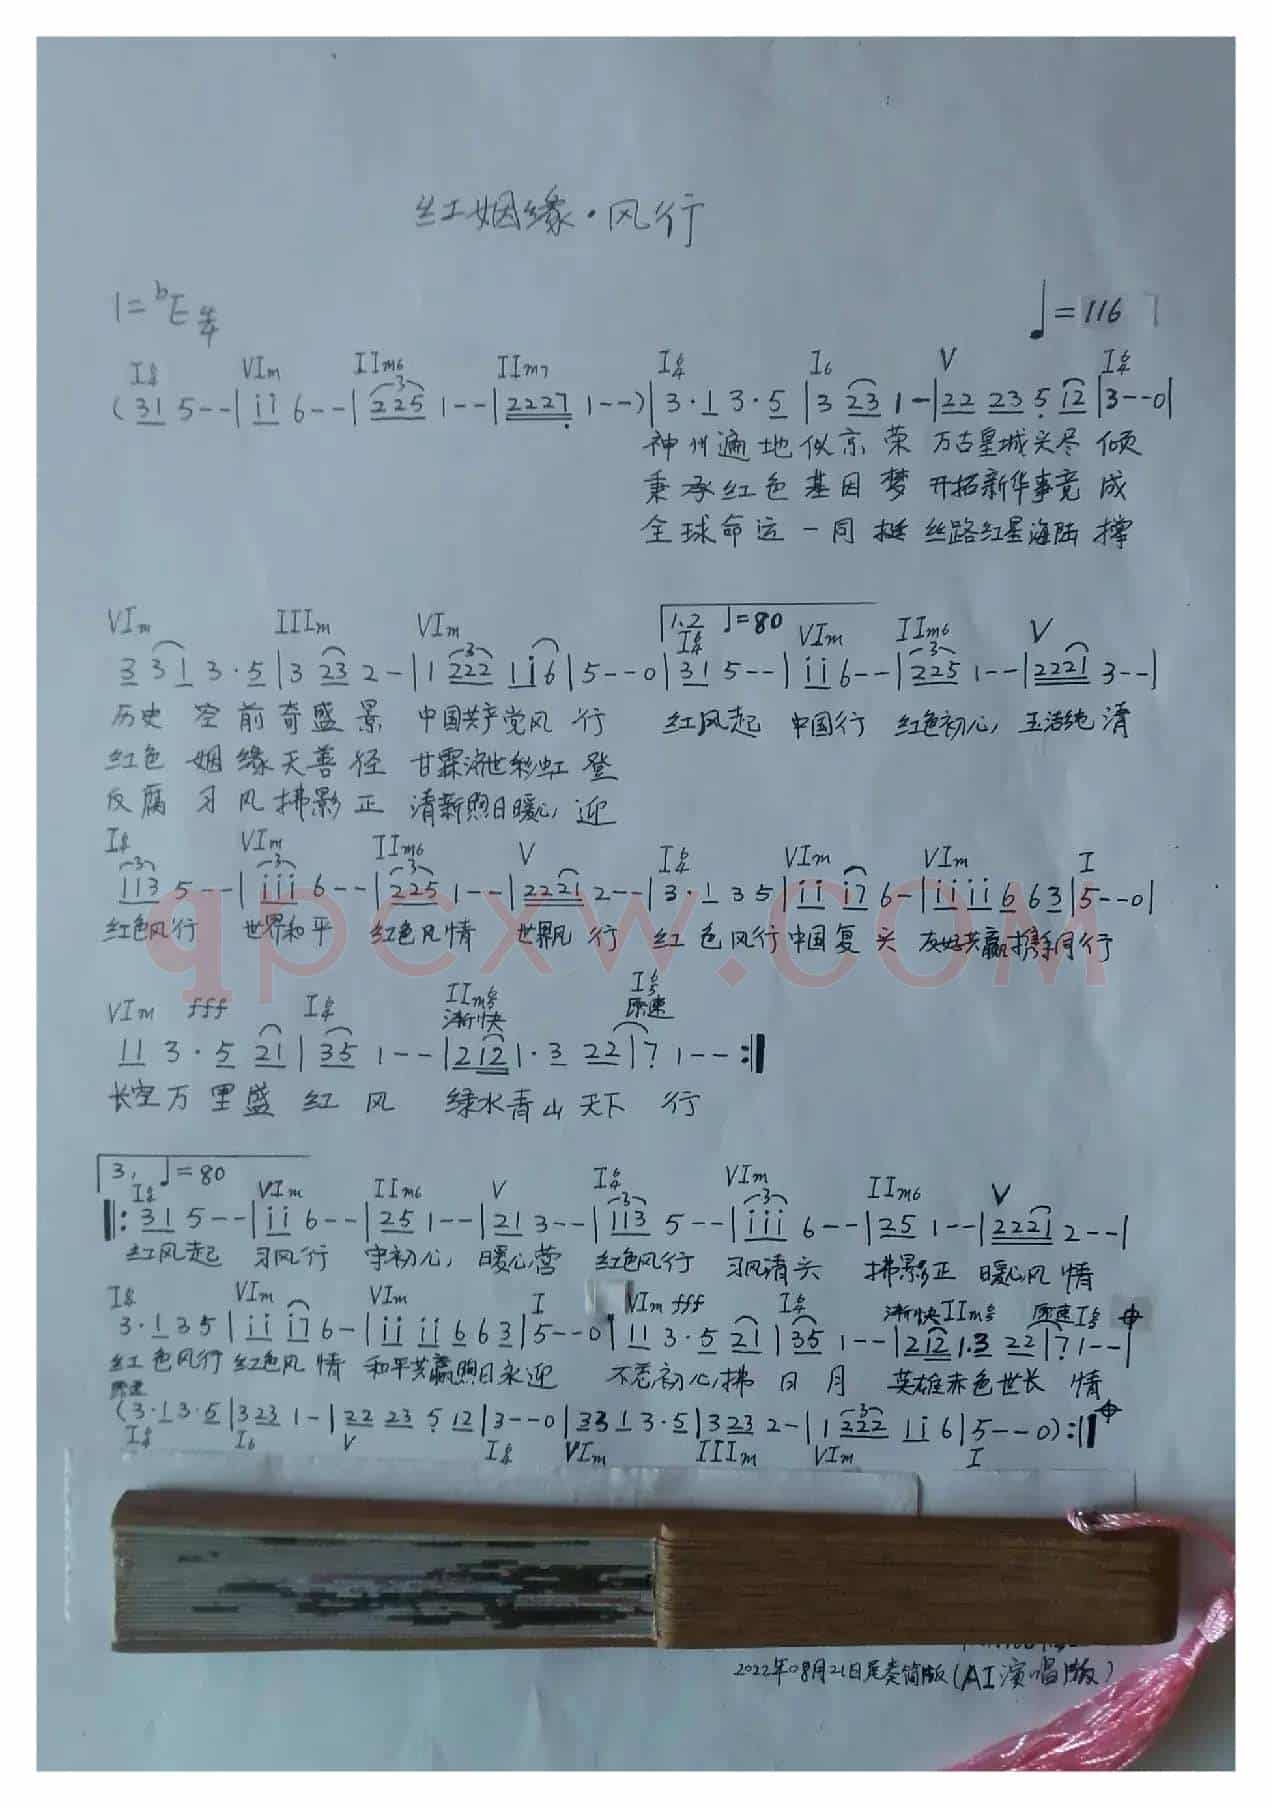 红姻缘·风行
1=bE 4/4
♩=116
I6/4 VIm IIm6 IIm7 I6/4 I6 V I6/4
(31 5--|ii 6--|225 1--|2227 1--)|3·1 3·5|3 23 1-|22 23 5 12|3--0|
神州遍地似京荣 万古星城关尽倾
秉承红色基因梦 开拓新华事竟成
全球命运一同挺 丝路红星海陆撑
VIm IIIm VIm 1.2 ♩=80 I6/4 VIm IIm6 V
3 31 3·5|3 23 2-|1 222 11i6|5--0|31 5--|ii 6--|225 1--|2221 3--|
历史空前奇盛景 中国共产党风行 红风起 中国行 红色初心,玉洁纯清
红色姻缘天善径 甘霖济世彩虹登
反腐习风拂影正 清新煦日暖心迎
I6/4 VIm IIm6 V I6/4 VIm VIm I
113 5--|iii 6--|225 1--|2221 2--|3·1 35|ii i7 6-|iiii 6 63|5--0|
红色风行 世界和平 红色风情 世界风行 红色风行中国复兴 友好共赢携手同行
VIm fff I6/4 IIm6/5 渐快 I6/5 原速
11 3·5 21|35 1--|212 1·3 22|7 1--:|
长空万里盛红风 绿水青山天下行
3. ♩=80
I6/4 VIm IIm6 V I6/4 VIm IIm6 V
|:31 5--|ii 6--|25 1--|21 3--|113 5--|iii 6--|25 1--|2221 2--|
红风起 习风行 守初心,暖心营 红色风行 习风清兴 拂影正 暖心风情
I6/4 VIm VIm I VIm fff I6/4 渐快 IIm6/5 原速 I6/5
3·1 35|ii i7 6-|ii ii 6 63|5--0|11 3·5 21|35 1--|212 1·3 22|7 1--|
红色风行 红色风情 和平共赢煦日永迎 不忘初心,拂日月 英雄赤色世长情
原速
(3·1 3·5|323 1-|22 23 5 12|3--0|331 3·5|323 2-|1 222 11i6|5--0):|
I6/4 I6 V I6/4 VIm IIIm VIm I
qpcxw.com
2022年08月21日尾奏简版(AI演唱版)